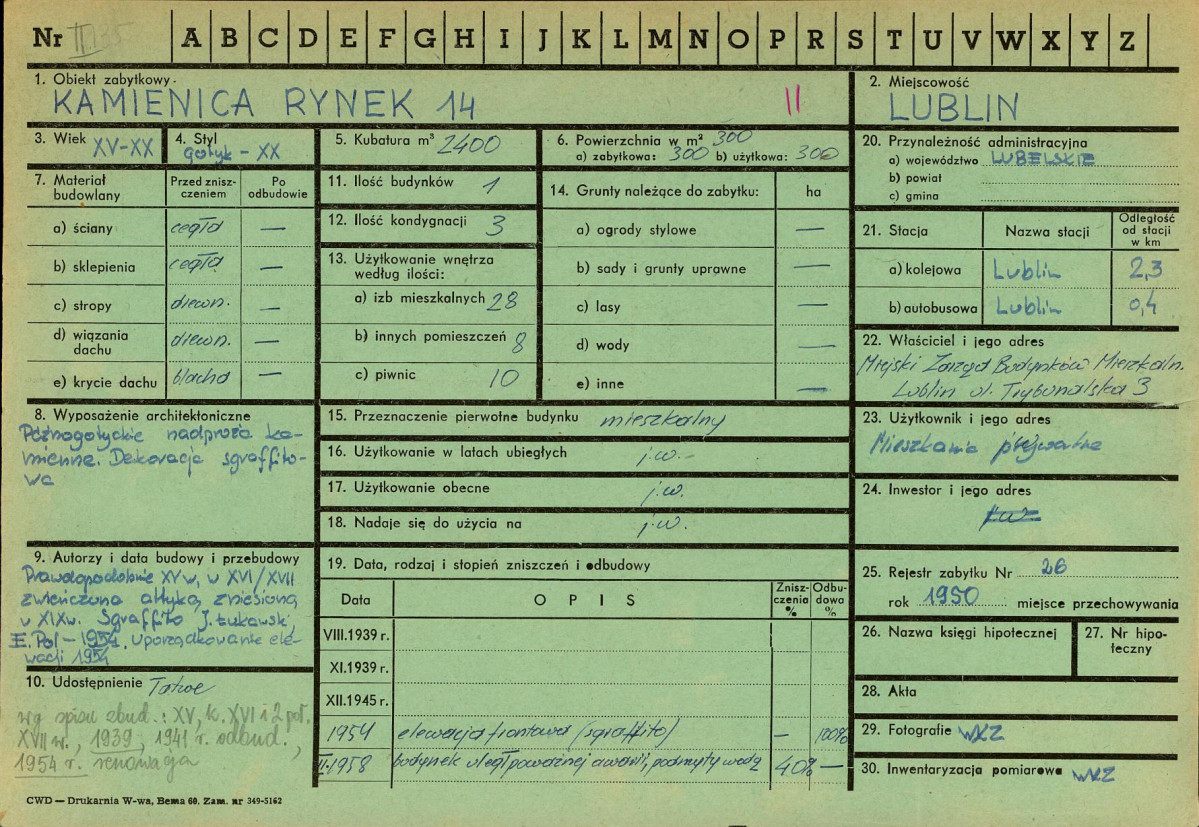 Nr II 135 A B C D E F G H I J K L M N O P R S T U V W X Y Z
1. Obiekt zabytkowy
KAMIENICA RYNEK 14 II
2. Miejscowość
LUBLIN
3. Wiek XV-XX
4. Styl
gotyk - XX
5. Kubatura m³ 2400
6. Powierzchnia w m² 300
a) zabytkowa: 300 b) użytkowa: 300
7. Materiał budowlany
Przed zniszczeniem
Po odbudowie
a) ściany cegła —
b) sklepienia cegła —
c) stropy drewn. —
d) wiązania dachu drewn. —
e) krycie dachu blacha —
8. Wyposażenie architektoniczne
Późnogotyckie nadproża ka-
mienne. Dekoracja sgraffito-
wa
9. Autorzy i data budowy i przebudowy
Prawdopodobnie XV w, w XVI/XVII
zwieńczona attyką, zniesioną
w XIXw. Sgraffito J. Łukawski,
E. Pol - 1954. uporządkowanie ele-
wacji 1954
10. Udostępnienie Łatwe
wg spisu zbud.: XV, k. XVI i 2 poł.
XVII w., 1939, 1941 r. odbud.,
1954 r. renowacja
11. Ilość budynków 1
12. Ilość kondygnacji 3
13. Użytkowanie wnętrza
według ilości:
a) izb mieszkalnych 28
b) innych pomieszczeń 8
c) piwnic 10
14. Grunty należące do zabytku: ha
a) ogrody stylowe —
b) sady i grunty uprawne —
c) lasy —
d) wody —
e) inne —
15. Przeznaczenie pierwotne budynku mieszkalny
16. Użytkowanie w latach ubiegłych j.w.-
17. Użytkowanie obecne j.w.
18. Nadaje się do użycia na j.w.
19. Data, rodzaj i stopień zniszczeń i odbudowy
Data OPIS Zniszczenia % Odbudowa %
VIII.1939 r.
XI.1939 r.
XII.1945 r.
1954 elewacja frontowa (sgraffito) — 100%
II.1958 budynek uległ poważnej awarii, podmyty wodą 40% —
20. Przynależność administracyjna
a) województwo LUBELSKIE
b) powiat
c) gmina
21. Stacja Nazwa stacji Odległość od stacji w km
a) kolejowa Lublin 2,3
b) autobusowa Lublin 0,4
22. Właściciel i jego adres
Miejski Zarząd Budynków Mieszkaln.
Lublin ul. Trybunalska 3
23. Użytkownik i jego adres
Mieszkania prywatne
24. Inwestor i jego adres
j.w.
25. Rejestr zabytku Nr 26
rok 1950 miejsce przechowywania
26. Nazwa księgi hipotecznej
27. Nr hipo-
teczny
28. Akta
29. Fotografie WKZ
30. Inwentaryzacja pomiarowa WKZ
CWD — Drukarnia W-wa, Bema 60. Zam. nr 349-5162